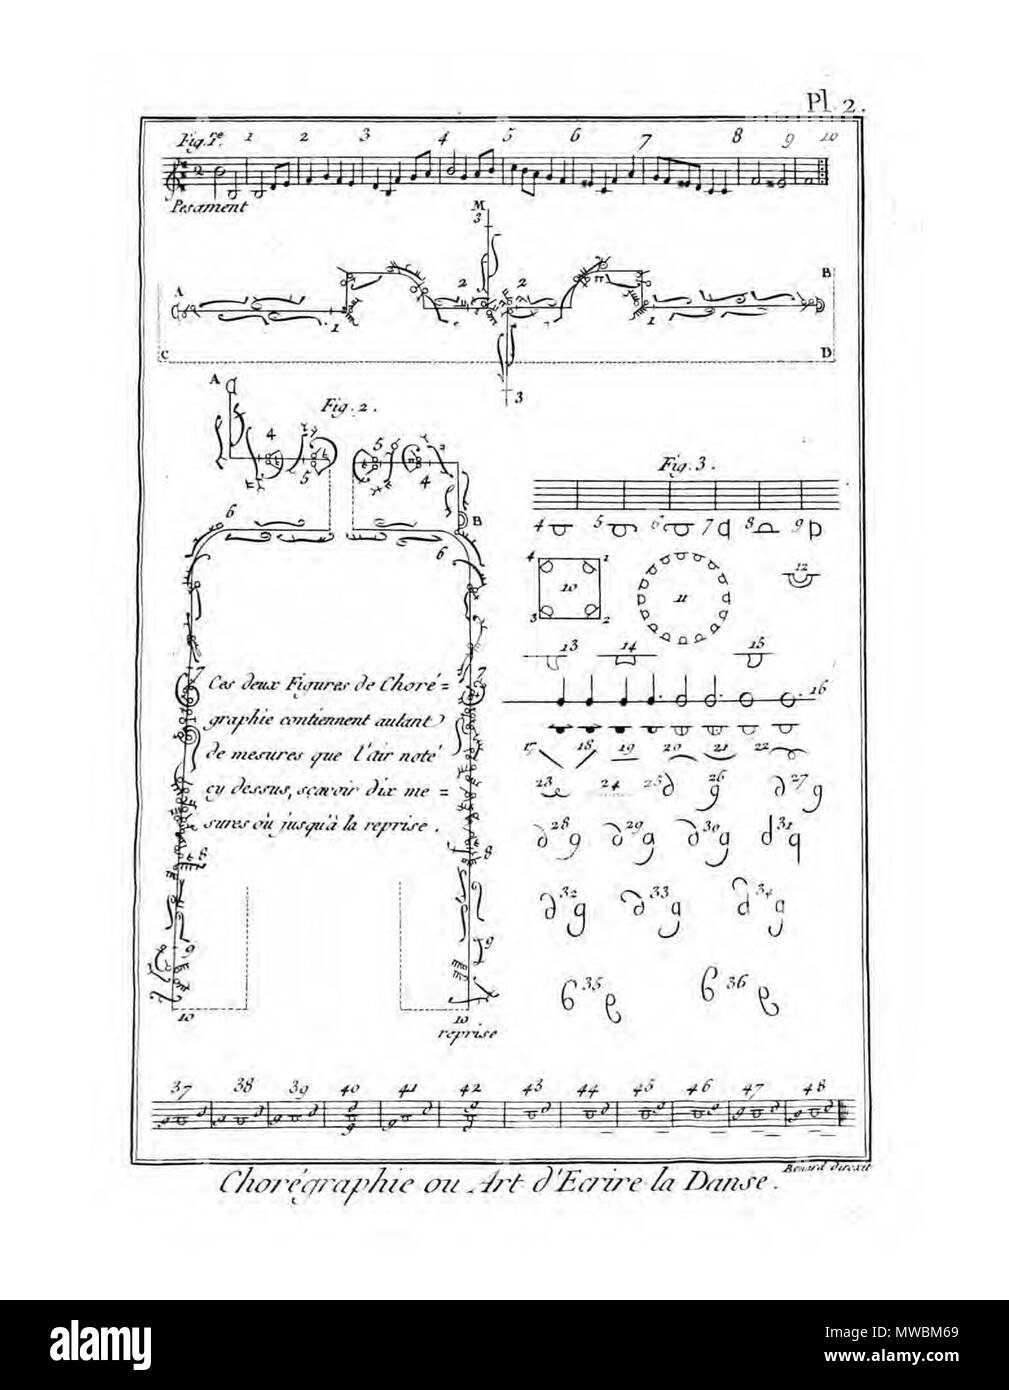 Pl. 2.
Fig. 1.re 1 2 3 4 5 6 7 8 9 10
2
Pesament
M
3
A 2 2 B
1 1
C D
3
A
Fig. 2.
4 5 5 4
B
6 6
7 7
Ces deux Figures de Choré=
graphie contiennent autant
de mesures que l'air noté
cy dessus, sçavoir dix me=
sures où jusqu'à la reprise.
8 8
9 9
10 10
reprise
Fig. 3.
4 5 6 7 8 9
4 1
10 11 12
3 2
13 14 15
16
17 18 19 20 21 22
23 24 25 26 27
28 29 30 31
32 33 34
35 36
37 38 39 40 41 42 43 44 45 46 47 48
Benard direxit
Chorégraphie ou Art d'Ecrire la Danse.
alamy
Image ID: MWBM69
www.alamy.com